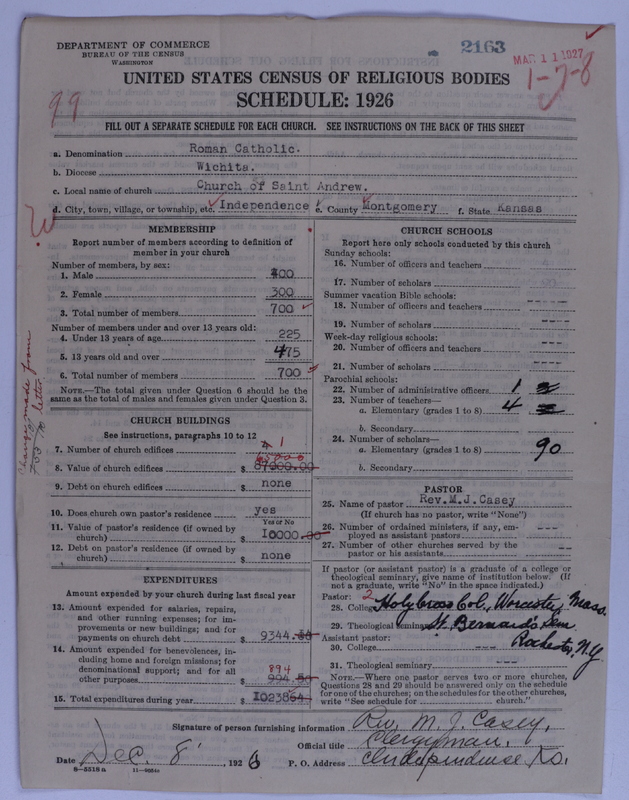 DEPARTMENT OF COMMERCE
BUREAU OF THE CENSUS
WASHINGTON
2163
MAR 11 1927
1-7-8
99
UNITED STATES CENSUS OF RELIGIOUS BODIES
SCHEDULE: 1926
FILL OUT A SEPARATE SCHEDULE FOR EACH CHURCH. SEE INSTRUCTIONS ON THE BACK OF THIS SHEET
a. Denomination Roman Catholic.
b. Diocese Wichita.
c. Local name of church Church of Saint Andrew.
d. City, town, village, or township, etc. Independence e. County Montgomery f. State Kansas
MEMBERSHIP
Report number of members according to definition of
member in your church
Number of members, by sex:
1. Male 400
2. Female 300
3. Total number of members 700
Number of members under and over 13 years old:
4. Under 13 years of age 225
5. 13 years old and over 475
6. Total number of members 700
NOTE.—The total given under Question 6 should be
same as the total of males and females given under Question 3.
Change made from
letter.
CHURCH BUILDINGS
See instructions, paragraphs 10 to 12
7. Number of church edifices 1
8. Value of church edifices $
9. Debt on church edifices $ none
10. Does church own pastor's residence yes
Yes or No
11. Value of pastor's residence (if owned by
church) $ 10000.00
12. Debt on pastor's residence (if owned by
church) $ none
EXPENDITURES
Amount expended by church during last fiscal year
13. Amount expended for salaries, repairs,
and other running expenses; for im-
provements or new buildings; and for
payments on church debt $ 9344.
14. Amount expended for benevolences, in-
cluding home and foreign missions; for
denominational support; and for all
other purposes $ 994.50
894
15. Total expenditures during year $ 1023864
CHURCH SCHOOLS
Report here only schools conducted by this church
Sunday schools:
16. Number of officers and teachers
17. Number of scholars
Summer vacation Bible schools:
18. Number of officers and teachers
19. Number of scholars
Week-day religious schools:
20. Number of officers and teachers
21. Number of scholars
Parochial schools:
22. Number of administrative officers 1
23. Number of teachers—
a. Elementary (grades 1 to 8) 4
b. Secondary
24. Number of scholars—
a. Elementary (grades 1 to 8) 90
b. Secondary
PASTOR
25. Name of pastor Rev.M.J.Casey
(If church has no pastor, write "None")
26. Number of ordained ministers, if any, em-
ployed as assistant pastors ---
27. Number of other churches served by the
pastor or his assistants ---
If pastor (or assistant pastor) is a graduate of a college or
theological seminary, give name of institution below. (If
not a graduate, write "No" in the space indicated.)
Pastor: 2
28. College Holy Cross Col., Worcester, Mass.
29. Theological seminary St. Bernard's Sem
Rochester, N.Y.
Assistant pastor:
30. College ---
31. Theological seminary ---
NOTE.—Where one pastor serves two or more churches,
Questions 28 and 29 should be answered only on the schedule
for one of the churches; on the schedules for the other churches,
write "See schedule for church."
Signature of person furnishing information Rev. M. J. Casey,
Official title Clergyman,
Date Dec. 8, 1926 P. O. Address Independence Ks.
8-5518 a